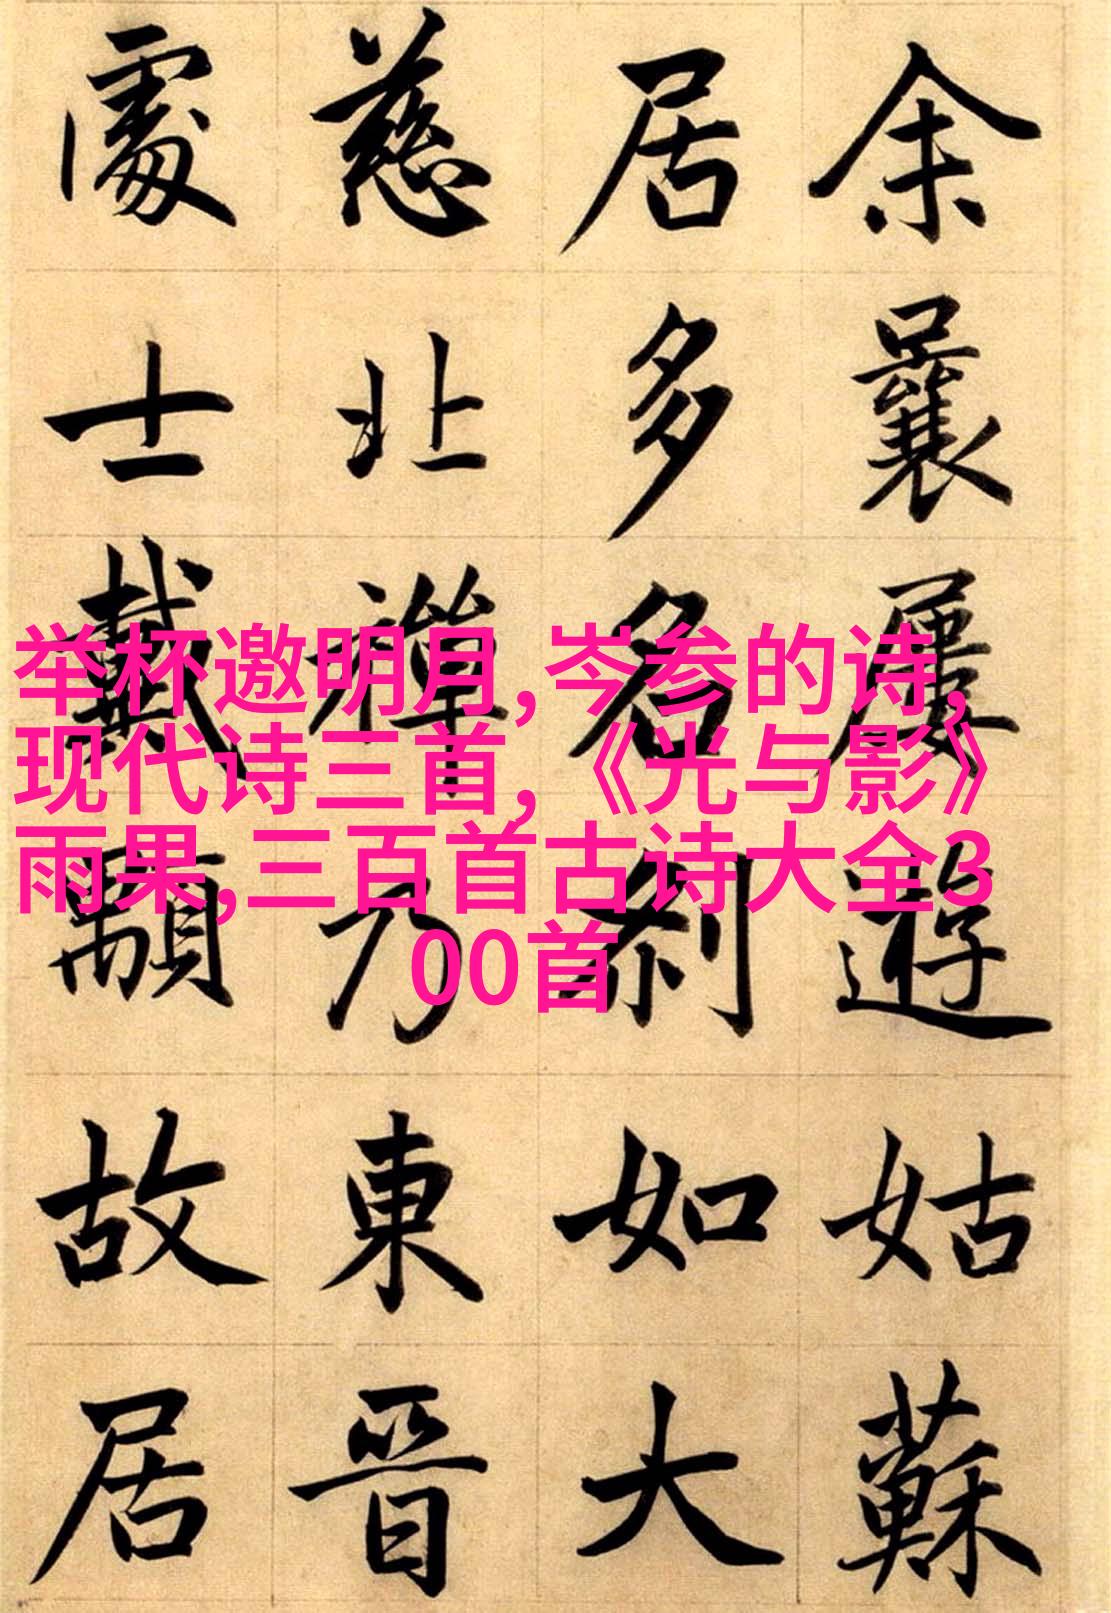 余曩屢遊姑蘇
居多名刹如大
慈北禪乃東晉
處士戴顒故居
举杯邀明月,岑参的诗,
现代诗三首,《光与影》
雨果,三百首古诗大全3
00首